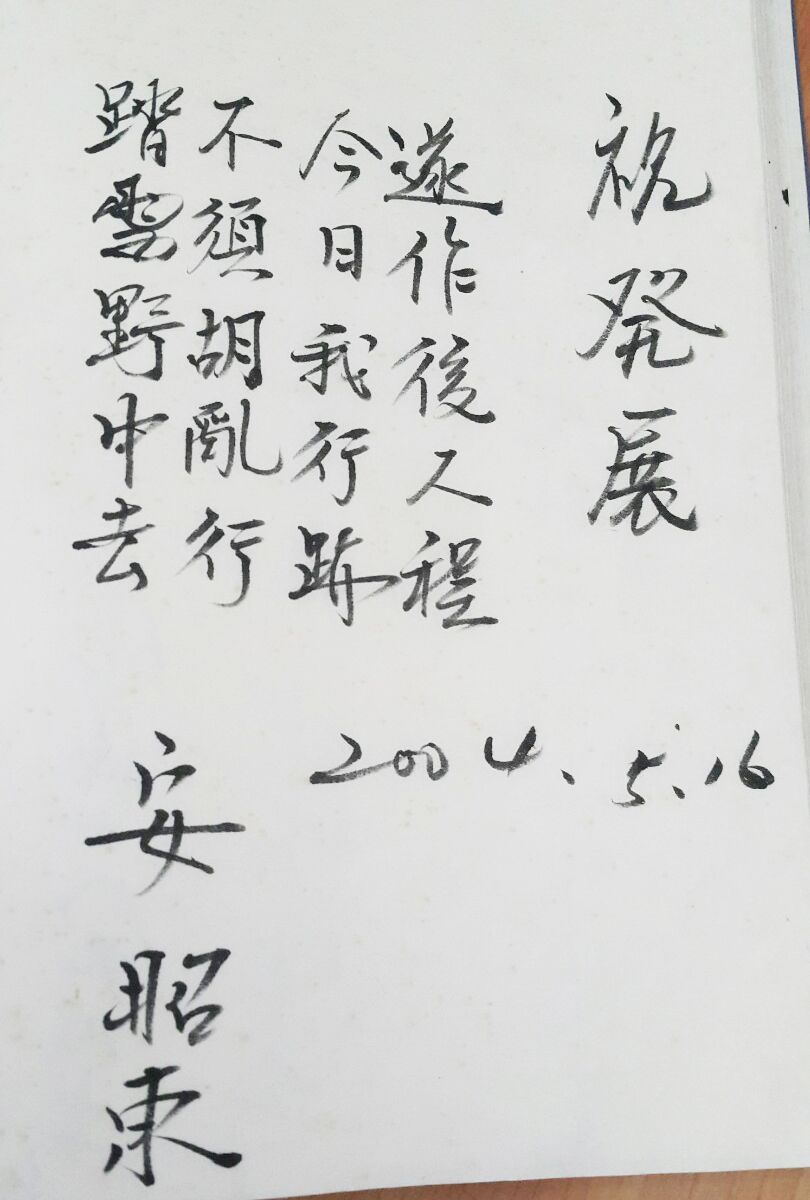 踏雪野中去
不須胡亂行
今日我行跡
遂作後人程
祝発展
2004.5.16
安昭東